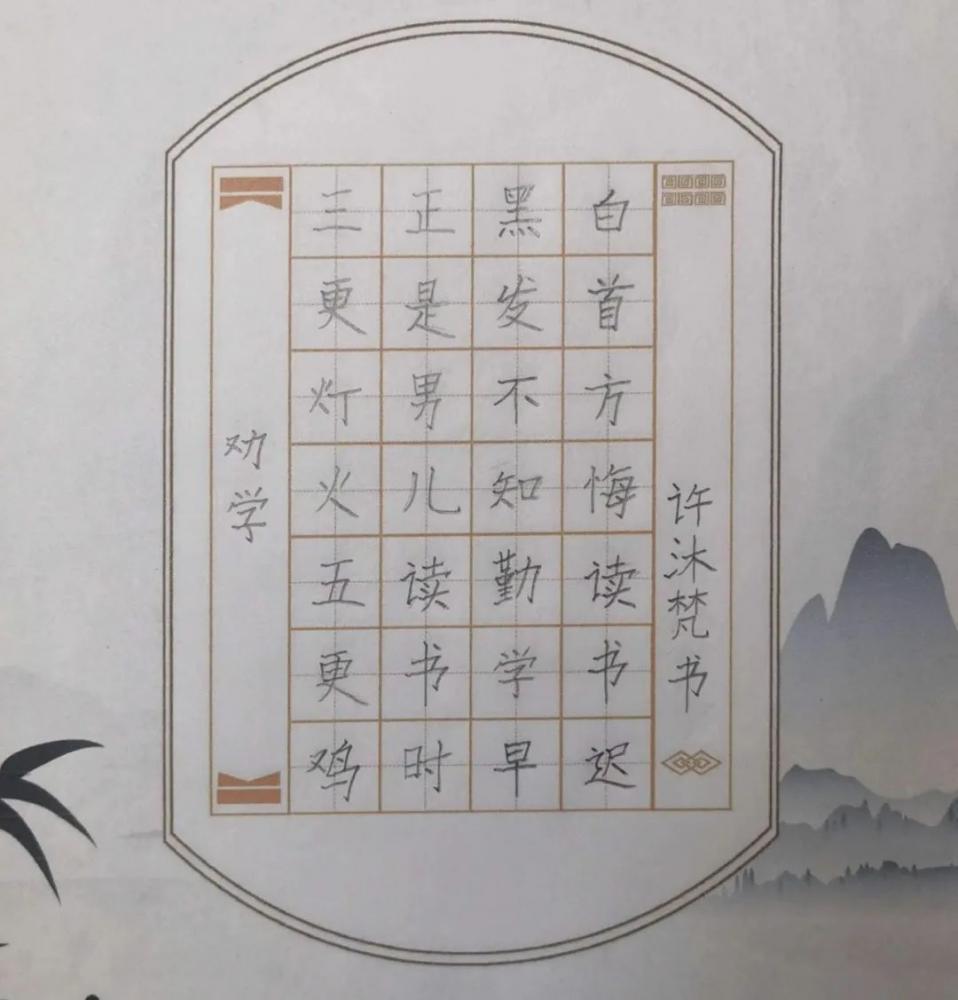 劝学
三更灯火五更鸡
正是男儿读书时
黑发不知勤学早
白首方悔读书迟
许沐梵书